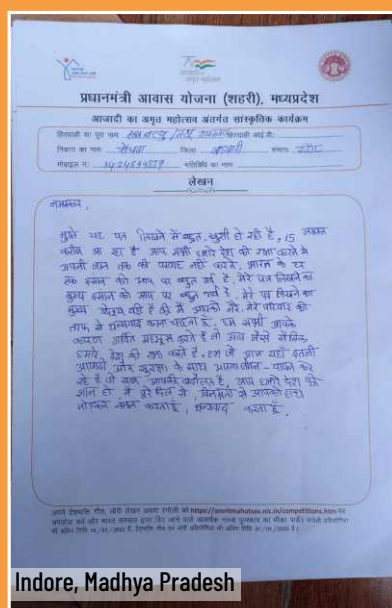 प्रधानमंत्री आवास योजना (शहरी), मध्यप्रदेश
आजादी का अमृत महोत्सव अंतर्गत सांस्कृतिक कार्यक्रम
हितग्राही का पूरा नाम हितग्राही आई.डी.
निकाय का नाम जिला संभाग इंदौर
मोबाइल नं. गतिविधि का नाम
लेखन
नमस्कार,
मुझे यह पत्र लिखने में बहुत खुशी हो रही है, 15 अगस्त
करीब आ रहा है आप सभी हमारे देश की रक्षा करने में
अपनी जान तक की परवाह नहीं करते, भारत के हर
एक इंसान को आप पर बहुत गर्व है, मेरे पत्र लिखने का
मुख्य इंसान को आप पर बहुत गर्व है, मेरे पत्र लिखने का
मुख्य यही है की मैं आपको मेरे, मेरे परिवार की
तरफ से धन्यवाद करना चाहता हूँ, हम सभी आपके
कारण गर्वित महसूस करते हैं जो आप जैसे सैनिक
हमारे देश की रक्षा करते हैं, हम जो आज यहाँ इतनी
और सुरक्षा के साथ अपना जीवन-यापन कर
रहे हैं वो सब आपकी बदौलत है, आप हमारे देश की
शान हो मैं पूरे दिल से, विनम्रता से आपको हाथ
जोड़कर नमन करता हूँ, धन्यवाद करता हूँ.
अपने देशभक्ति गीत, लोरी लेखन अथवा रंगोली को https://amritmahotsav.nic.in/competitions.htm पर
अपलोड करें और भारत सरकार द्वारा दिए जाने वाले आकर्षक नगद पुरस्कार का मौका पायें।
Indore, Madhya Pradesh